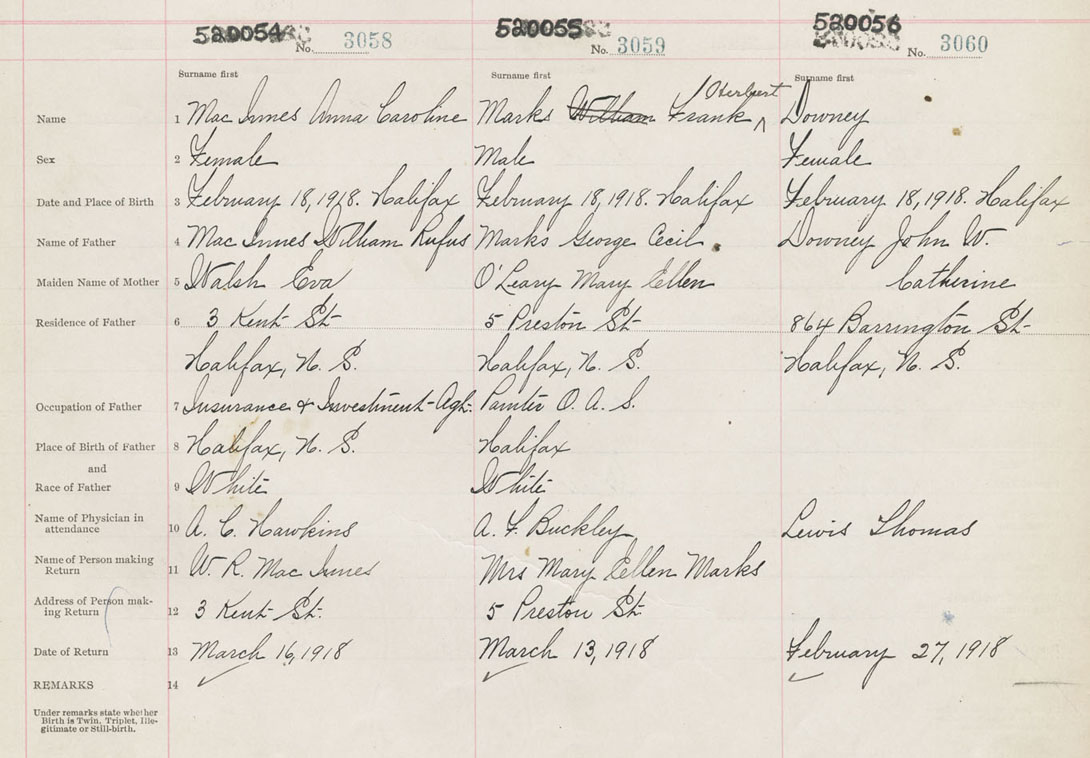 520054 No. 3058 520055 No. 3059 520056 No. 3060
Surname first Surname first Surname first
Herbert
Name 1 Mac Innes Anna Caroline Marks William Frank ^ Downey
Sex 2 Female Male Female
Date and Place of Birth 3 February 18, 1918. Halifax February 18, 1918. Halifax February 18, 1918. Halifax
Name of Father 4 Mac Innes William Rufus Marks George Cecil Downey John W.
Maiden Name of Mother 5 Walsh Eva O'Leary Mary Ellen Catherine
Residence of Father 6 3 Kent St 5 Preston St 864 Barrington St
Halifax, N. S. Halifax, N. S. Halifax, N. S.
Occupation of Father 7 Insurance & Investment Agt. Painter O. A. S.
Place of Birth of Father 8 Halifax, N. S. Halifax
and
Race of Father 9 White White
Name of Physician in
attendance 10 A. C. Hawkins A. F. Buckley Lewis Thomas
Name of Person making
Return 11 W. R. Mac Innes Mrs Mary Ellen Marks
Address of Person mak-
ing Return 12 3 Kent St. 5 Preston St
Date of Return 13 March 16, 1918 March 13, 1918 February 27, 1918
REMARKS 14
Under remarks state whether
Birth is Twin, Triplet, Ille-
gitimate or Still-birth.